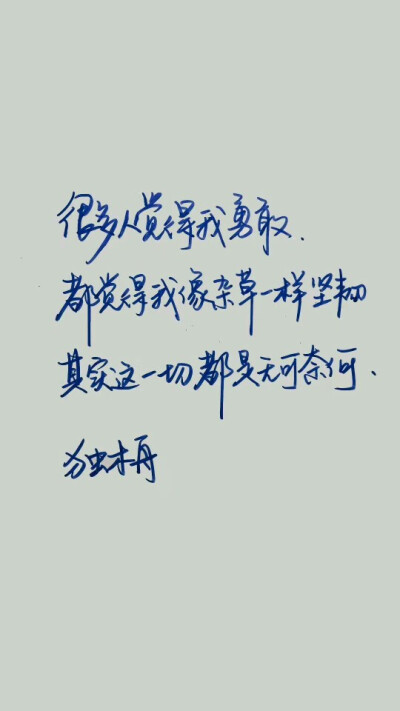 很多人觉得我勇敢.
都觉得我像杂草一样坚韧
其实这一切都是无可奈何.
独木舟